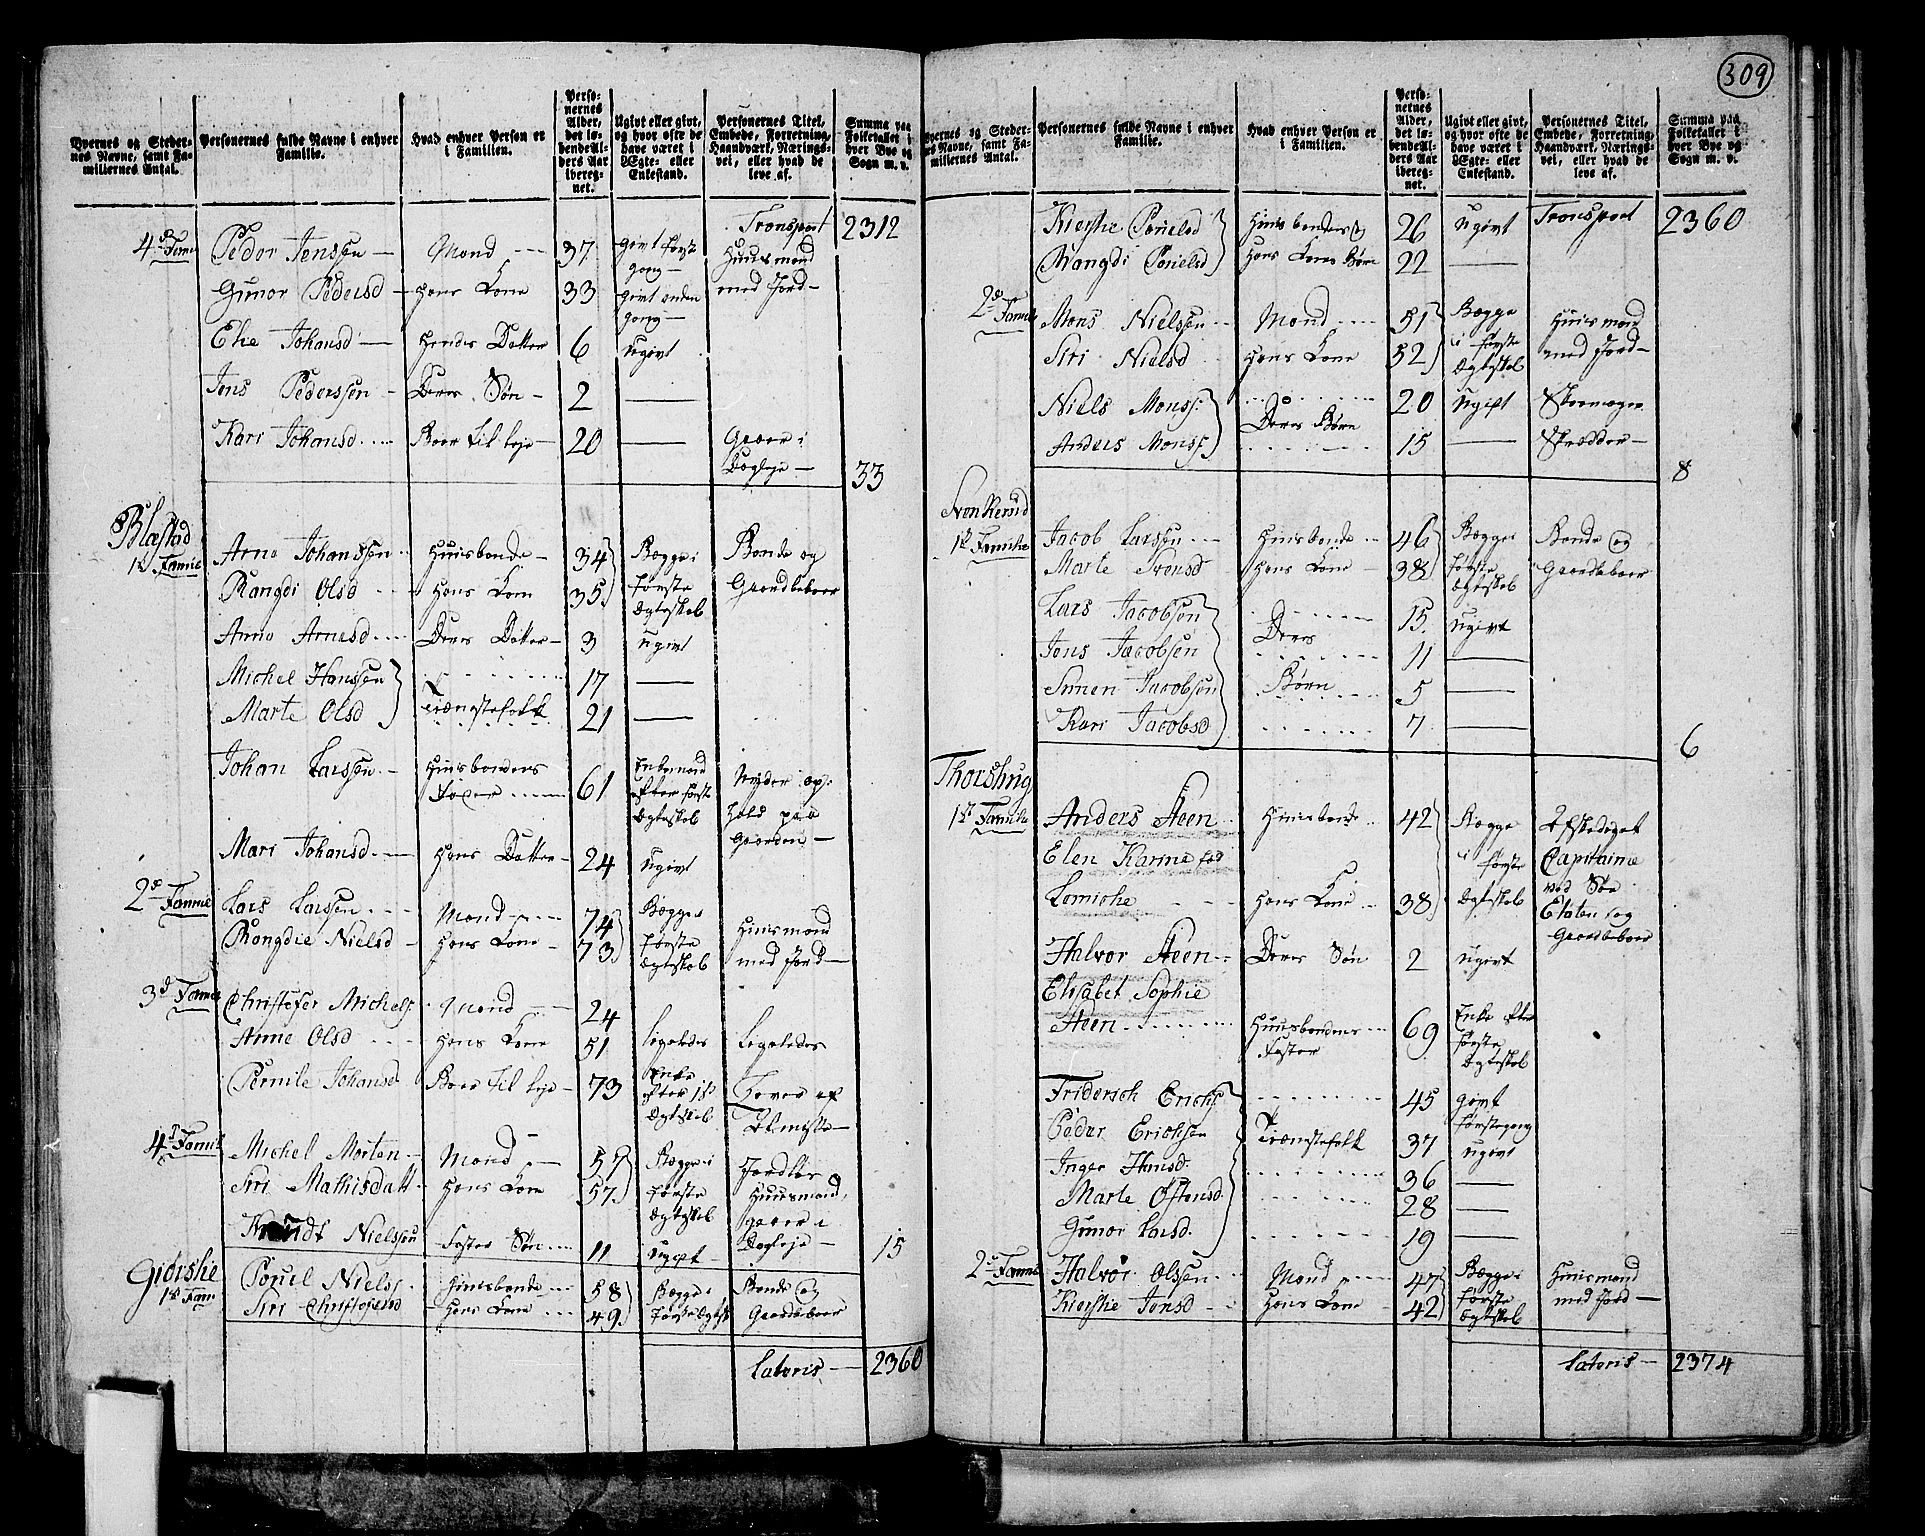 309
Byernes og Stedernes Navne, samt Familiernes Antal.
Personernes fulde Navne i enhver Familie.
Hvad enhver Person er i Familien.
Personernes Alder, det løbende Alders Aar iberegnet.
Ugivt eller givt, og hvor ofte de have været i Ægte- eller Enkestand.
Personernes Titel, Embede, Forretning, Haandværk, Næringsvei, eller hvad de leve af.
Summa paa Folketallet i hver Bye og Sogn m. v.
Transport 2312
4de Fam Peder Jenssen — Mand 37 givt først gang — Huusmand med Jord —
Gunor Pedersd — Hans Kone 33 givt anden gang —
Elie Johansd — Hendes Datter 6 ugivt
Jens Pederssen — Deres Søn — 2 —
Kari Johansd Boer til leje — 20 — Gaaer i Dagleje — 33
Blæstad
1ste Famie Arne Johanssen Huusbonde — 34 Begge i første Ægteskab Bonde og Gaardbeboer
Rangdi Olsd Hans Kone 35
Anne Arnesd Deres Datter — 3 ugivt
Michel Hanssen 17 —
Marte Olsd Tienestefolk 21 —
Johan Larssen Huusbondens Fader 61 Enkemand efter første Ægteskab Nyder ophold paa Gaarden —
Mari Johansd Hans Datter 24 ugivt
2de Famie Lars Larssen Mand 74 Begge i første Ægteskab Huusmand med Jord —
Rangdie Nielsd — Hans Kone — 73
3d Famie Christofer Michels. Mand 24 Ligeledes Ligeledes
Anne Olsd Hans Kone 51
Pernile Johansd Boer til leje — 73 Enke efter 1ste Ægteskab Lever af Almisse —
4d Famil Michel Morten Mand 59 Begge i første Ægteskab Jordløs Huusmand, gaaer i Dagleje —
Siri Mathisdatt Hans Kone 57
Knudt Nielssen Foster Søn 11 ugivt 15
Giørshe
1st Fam Pouel Niels. Huusbonde 58 Begge i første Ægtesk Bonde og Gaardbeboer
Siri Christofersd Hans Kone 49
Lateris — 2360
Byernes og Stedernes Navne, samt Familiernes Antal.
Personernes fulde Navne i enhver Familie.
Hvad enhver Person er i Familien.
Personernes Alder, det løbende Alders Aar iberegnet.
Ugivt eller givt, og hvor ofte de have været i Ægte- eller Enkestand.
Personernes Titel, Embede, Forretning, Haandværk, Næringsvei, eller hvad de leve af.
Summa paa Folketallet i hver Bye og Sogn m. v.
Kiersthe Pouelsd Huusbonders og 26 ugivt Transport 2360
Rangdi Pouelsd Hans Kones Børn 22 —
2de Famie Mons Nielssen Mand 51 Begge i første Ægteskab Huusmand med Jord —
Siri Nielsd Hans Kone 52
Niels Monss. Deres Børn 20 ugivt Skoemager
Anders Monss. 15 — Skrædder —
8
Svenkerud
1st Familie Jacob Larssen Huusbonde 46 Begge i første Ægteskab Bonde og Gaardbeboer
Marte Svensd Hans Kone — 38
Lars Jacobsen Deres Børn 15 ugivt
Jens Jacobsen 11 —
Simen Jacobsen 5 —
Kari Jacobsd 7 —
6
Thorshug
1st Familie Anders Steen Huusbonde 42 Begge i første Ægteskab Afskediget Capitaine ved Søe Etaten og Gaardbeboer
Elen Karine fød
Lemiche Hans Kone 38
Halvor Steen Deres Søn 2 ugivt
Elisabet Sophie
Steen Huusbondens Faster 69 Enke efter første Ægteskab
Friderich Erichs. 45 givt førstegang
Peder Erichsen Tienestefolk 37 ugivt
Inger Hansd. 36 —
Marte Østensd 28 —
Gunor Larsd. 19 —
2de Famie Halvor Olssen Mand 47 Begge i første Ægteskab Huusmand med Jord —
Kiersthe Jensd Hans Kone 42
Lateris — 2374